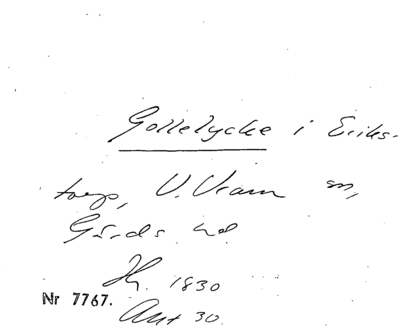 Gollelycke i Eriks-
torp, V. Vram sn,
Gärds hd
Hy. 1830
Nr 7767.
Ant 30